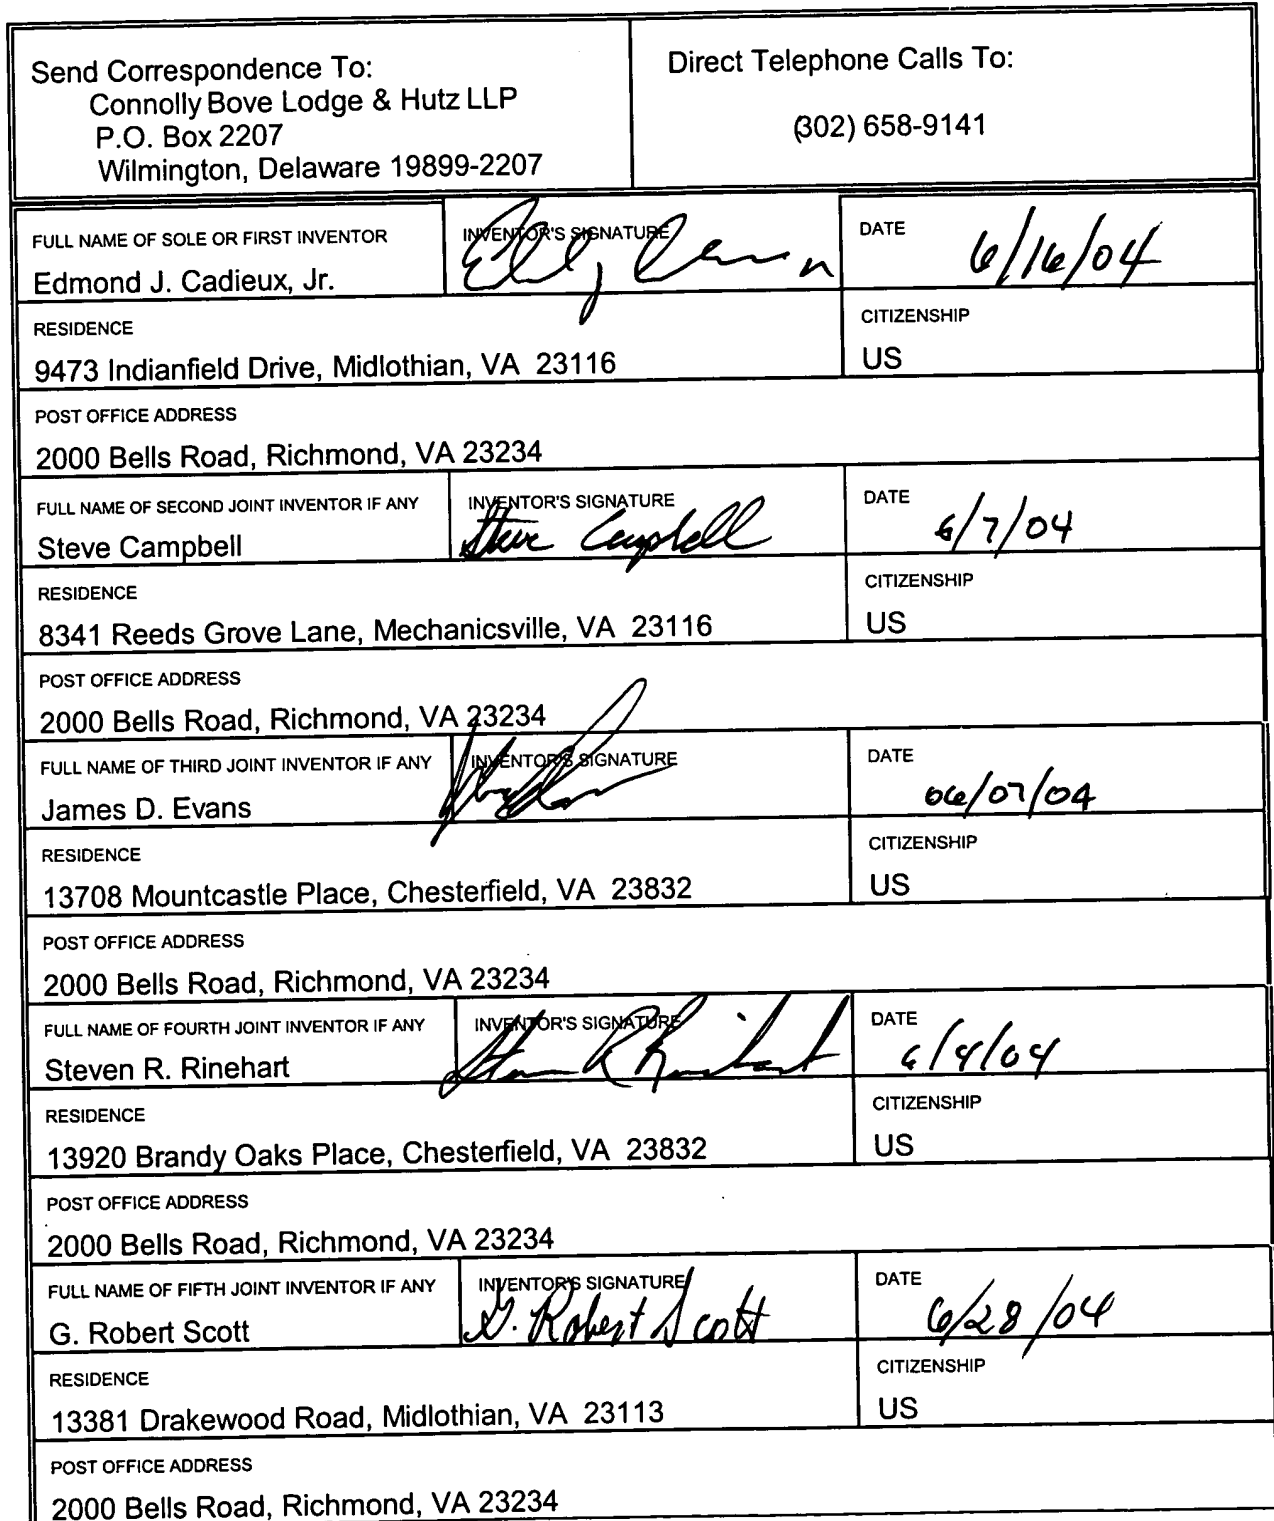 Send Correspondence To:
Connolly Bove Lodge & Hutz LLP
P.O. Box 2207
Wilmington, Delaware 19899-2207
Direct Telephone Calls To:
(302) 658-9141
FULL NAME OF SOLE OR FIRST INVENTOR
Edmond J. Cadieux, Jr.
INVENTOR'S SIGNATURE
DATE
6/16/04
RESIDENCE
9473 Indianfield Drive, Midlothian, VA 23116
CITIZENSHIP
US
POST OFFICE ADDRESS
2000 Bells Road, Richmond, VA 23234
FULL NAME OF SECOND JOINT INVENTOR IF ANY
Steve Campbell
INVENTOR'S SIGNATURE
Steve Campbell
DATE
6/7/04
RESIDENCE
8341 Reeds Grove Lane, Mechanicsville, VA 23116
CITIZENSHIP
US
POST OFFICE ADDRESS
2000 Bells Road, Richmond, VA 23234
FULL NAME OF THIRD JOINT INVENTOR IF ANY
James D. Evans
INVENTOR'S SIGNATURE
DATE
06/07/04
RESIDENCE
13708 Mountcastle Place, Chesterfield, VA 23832
CITIZENSHIP
US
POST OFFICE ADDRESS
2000 Bells Road, Richmond, VA 23234
FULL NAME OF FOURTH JOINT INVENTOR IF ANY
Steven R. Rinehart
INVENTOR'S SIGNATURE
Steven R Rinehart
DATE
6/4/04
RESIDENCE
13920 Brandy Oaks Place, Chesterfield, VA 23832
CITIZENSHIP
US
POST OFFICE ADDRESS
2000 Bells Road, Richmond, VA 23234
FULL NAME OF FIFTH JOINT INVENTOR IF ANY
G. Robert Scott
INVENTOR'S SIGNATURE
G. Robert Scott
DATE
6/28/04
RESIDENCE
13381 Drakewood Road, Midlothian, VA 23113
CITIZENSHIP
US
POST OFFICE ADDRESS
2000 Bells Road, Richmond, VA 23234